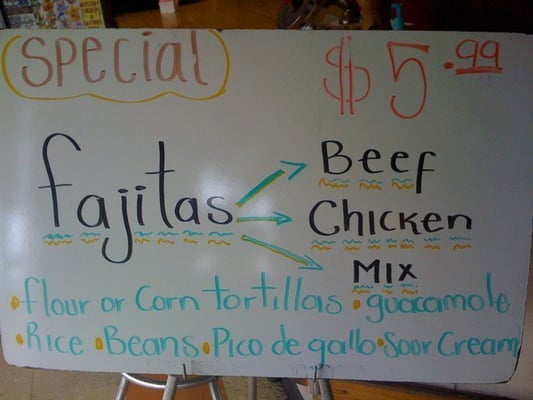 special
$5.99
fajitas
Beef
Chicken
Mix
• flour or Corn tortillas • guacamole
• Rice • Beans • Pico de gallo • Sour Cream